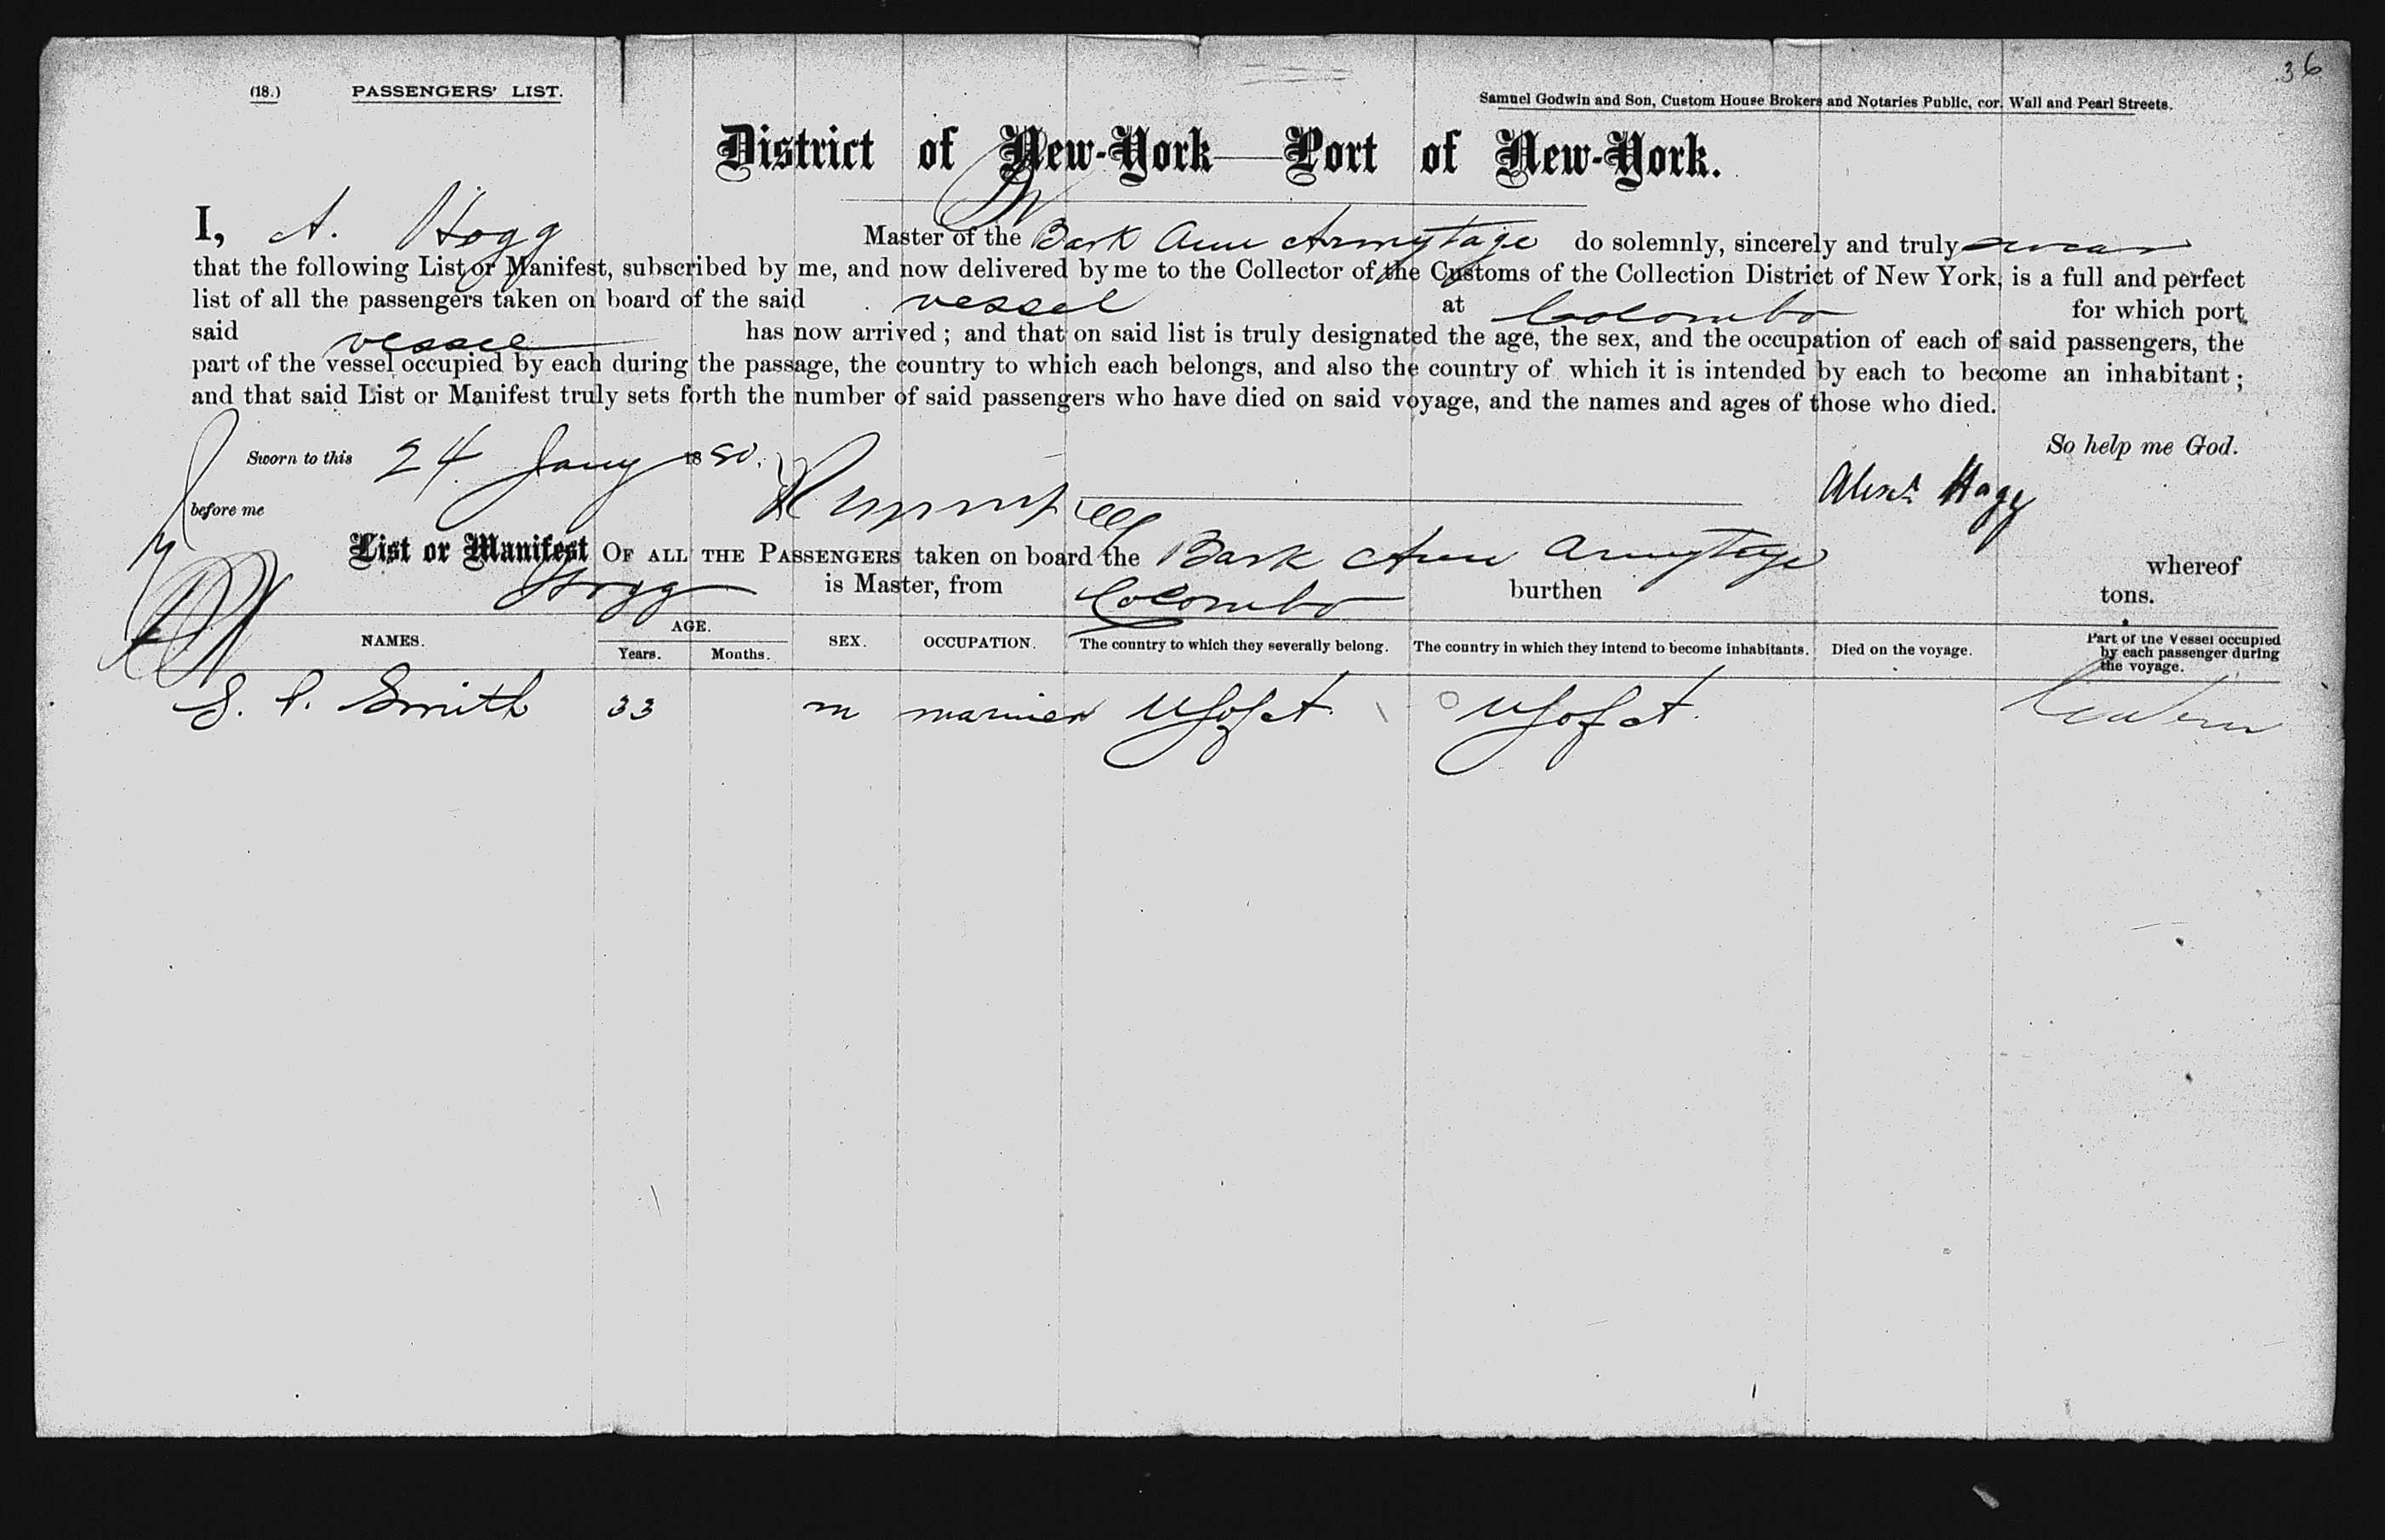 36
(18.) PASSENGERS' LIST. Samuel Godwin and Son, Custom House Brokers and Notaries Public, cor. Wall and Pearl Streets.
District of New-York—Port of New-York.
I, A. Hogg Master of the Bark Ann Armytage do solemnly, sincerely and truly swear
that the following List or Manifest, subscribed by me, and now delivered by me to the Collector of the Customs of the Collection District of New York, is a full and perfect
list of all the passengers taken on board of the said vessel at Colombo for which port
said vessel has now arrived; and that on said list is truly designated the age, the sex, and the occupation of each of said passengers, the
part of the vessel occupied by each during the passage, the country to which each belongs, and also the country of which it is intended by each to become an inhabitant;
and that said List or Manifest truly sets forth the number of said passengers who have died on said voyage, and the names and ages of those who died.
So help me God.
Sworn to this 24 Jany 1880.
before me Alexr Hogg
List or Manifest OF ALL THE PASSENGERS taken on board the Bark Ann Armytage whereof
Hogg is Master, from Colombo burthen tons.
NAMES. AGE. Years. Months. SEX. OCCUPATION. The country to which they severally belong. The country in which they intend to become inhabitants. Died on the voyage. Part of the Vessel occupied by each passenger during the voyage.
S. P. Smith 33 m mariner U S of A U S of A